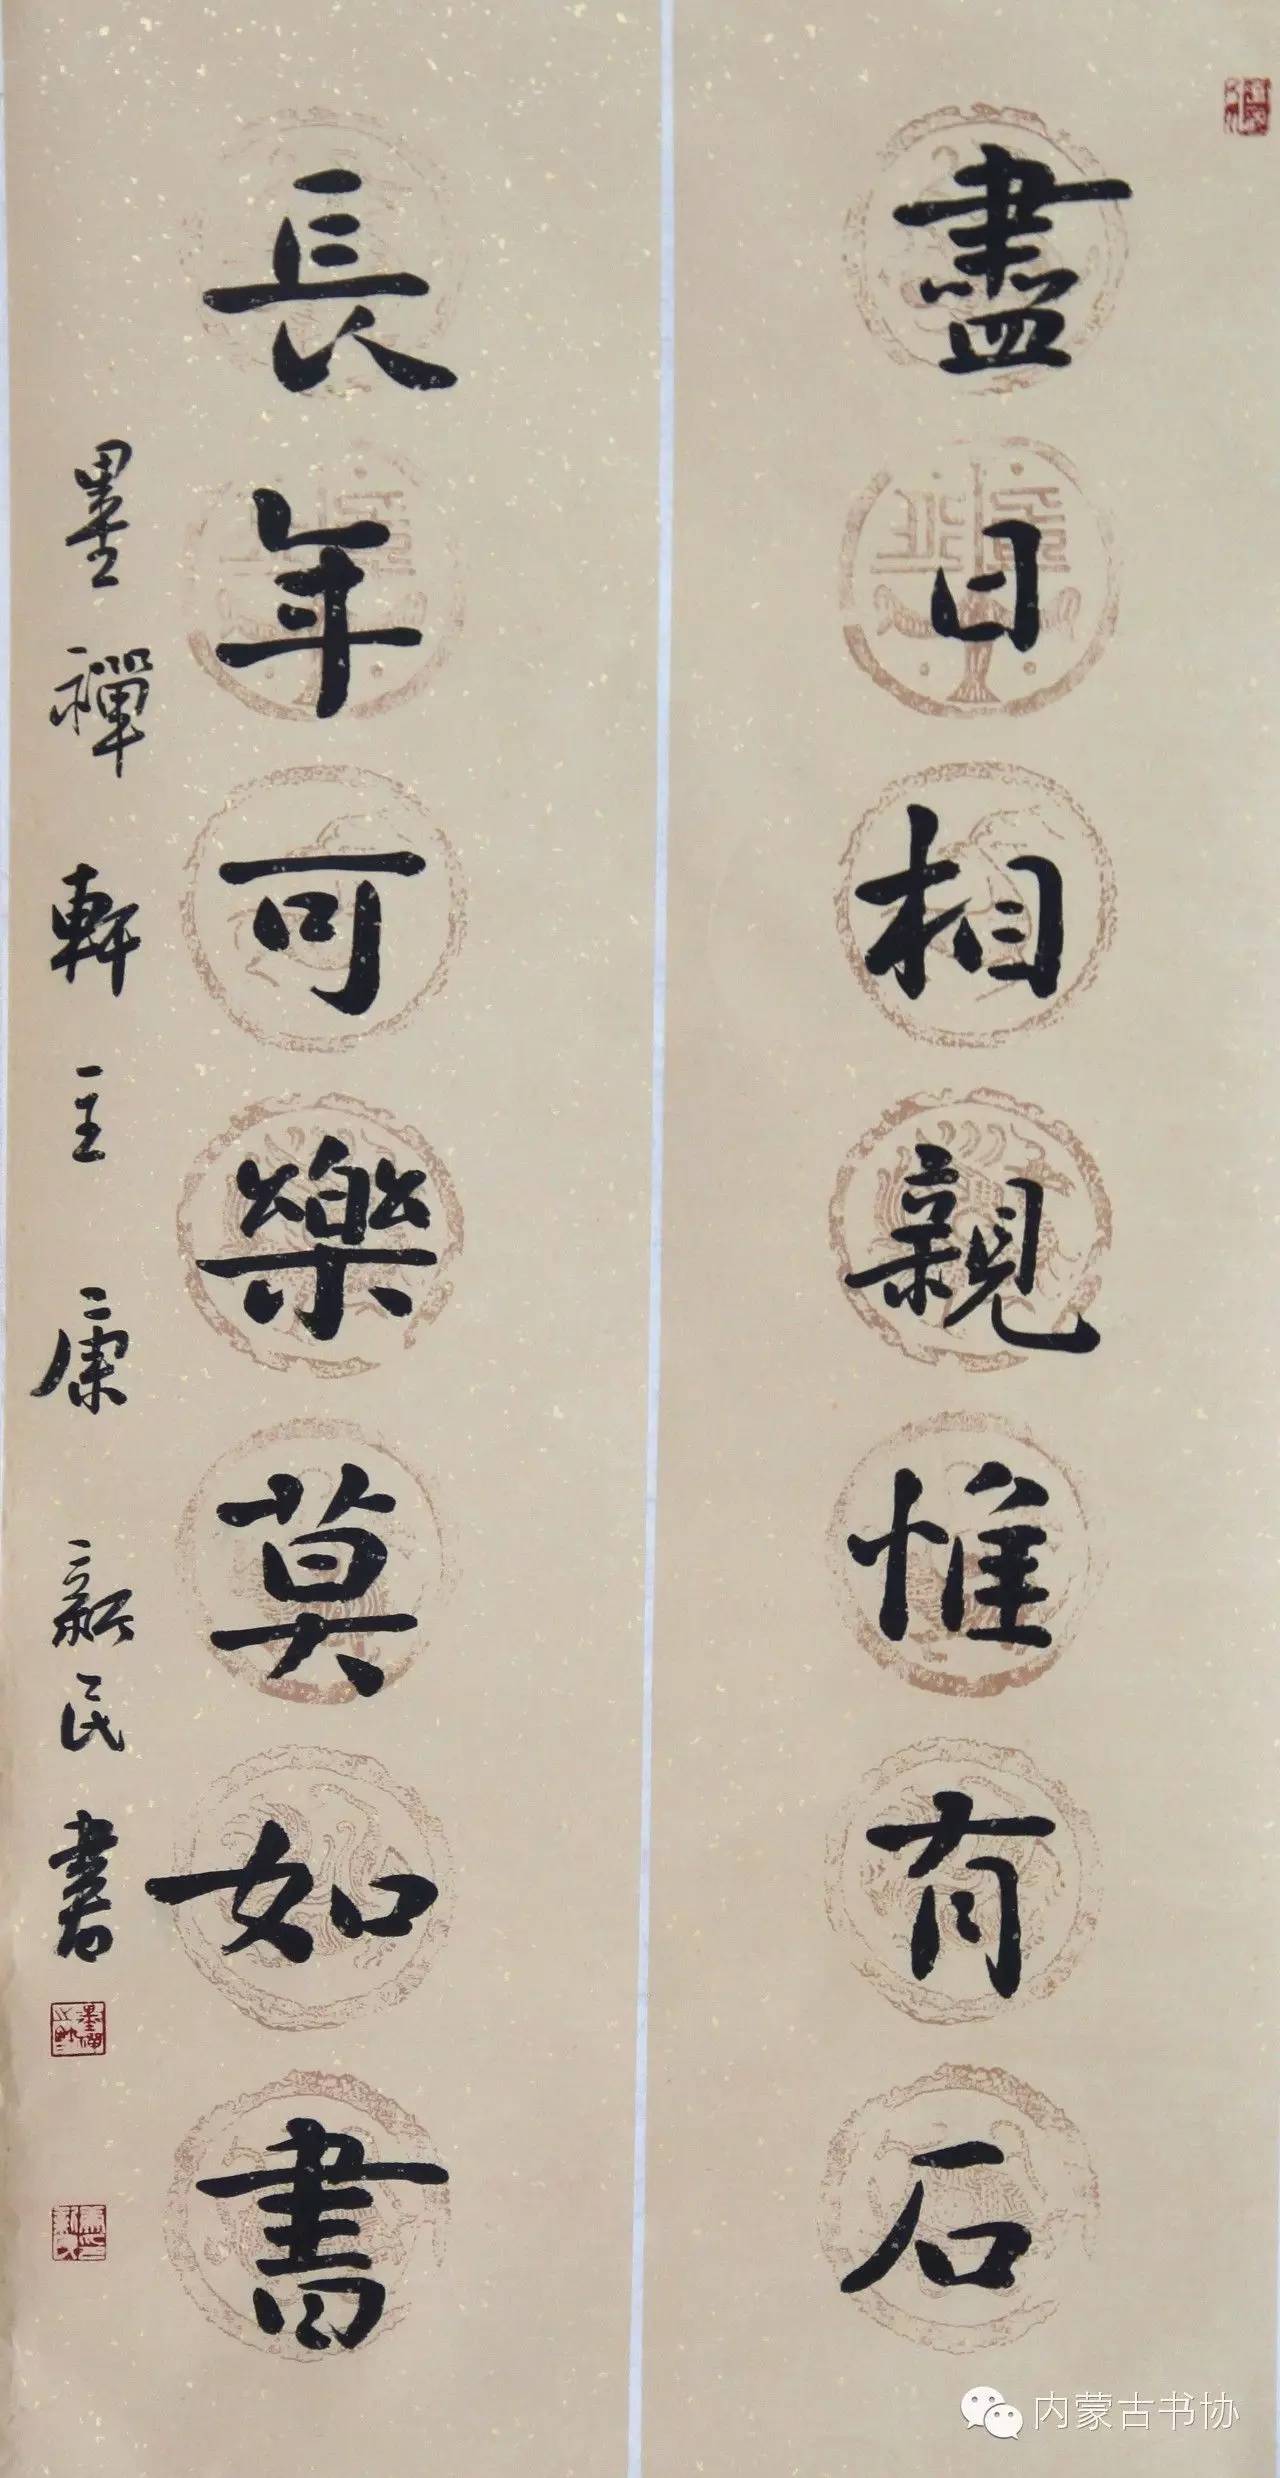 盡日相親惟有石
長年可樂莫如書
墨禪軒主康新民書
内蒙古书协